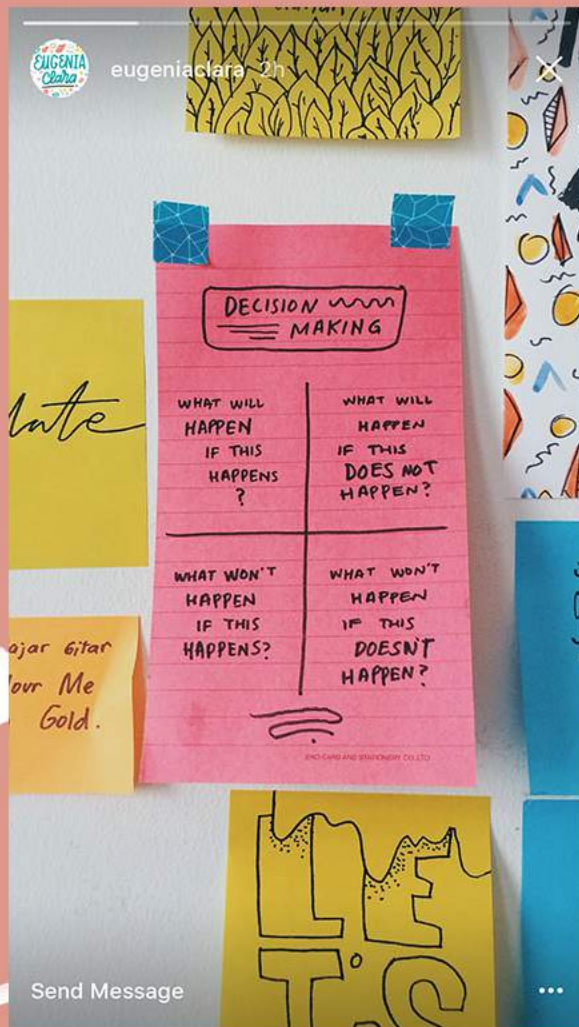 EUGENIA
Clara
eugeniaclara 2h
DECISION
MAKING
WHAT WILL
HAPPEN
IF THIS
HAPPENS
?
WHAT WILL
HAPPEN
IF THIS
DOES NOT
HAPPEN?
WHAT WON'T
HAPPEN
IF THIS
HAPPENS?
WHAT WON'T
HAPPEN
IF THIS
DOESN'T
HAPPEN?
ajar Gitar
Me
Gold.
LE
T'S
Send Message